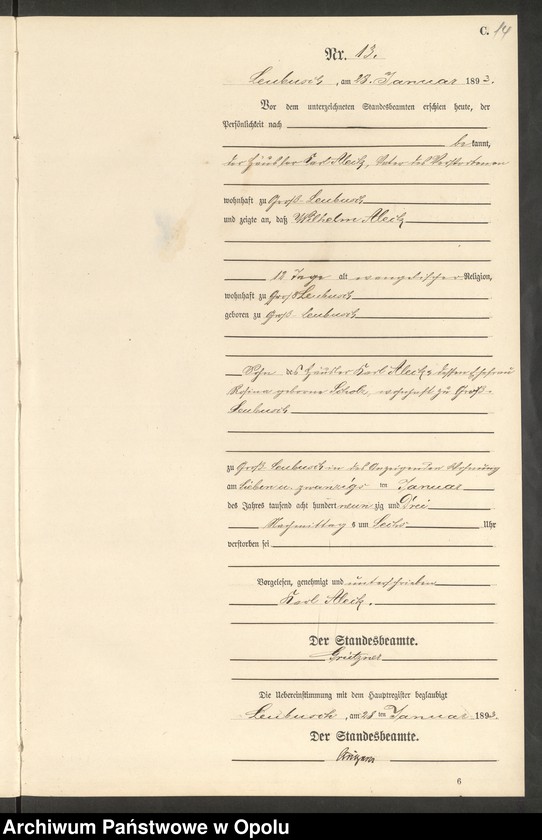 C. 14
Nr. 13.
Leubusch, am 28. Januar 1893.
Vor dem unterzeichneten Standesbeamten erschien heute, der
Persönlichkeit nach
bekannt,
der Häusler Karl Aleitz, Vater des Verstorbenen
wohnhaft zu Groß Leubusch
und zeigte an, daß Wilhelm Aleitz
12 Tage alt evangelischer Religion,
wohnhaft zu Groß Leubusch
geboren zu Groß Leubusch
Sohn des Häusler Karl Aleitz u. dessen Ehefrau
Rosina geborene Scholz, wohnhaft zu Groß-
Leubusch
zu Groß Leubusch in des Anzeigenden Wohnung
am sieben u. zwanzigs ten Januar
des Jahres tausend acht hundert neunzig und Drei
Nachmittags um Sechs Uhr
verstorben sei
Vorgelesen, genehmigt und unterschrieben
Karl Aleitz.
Der Standesbeamte.
Grützner
Die Uebereinstimmung mit dem Hauptregister beglaubigt
Leubusch, am 28 ten Januar 1893.
Der Standesbeamte.
6
Archiwum Państwowe w Opolu